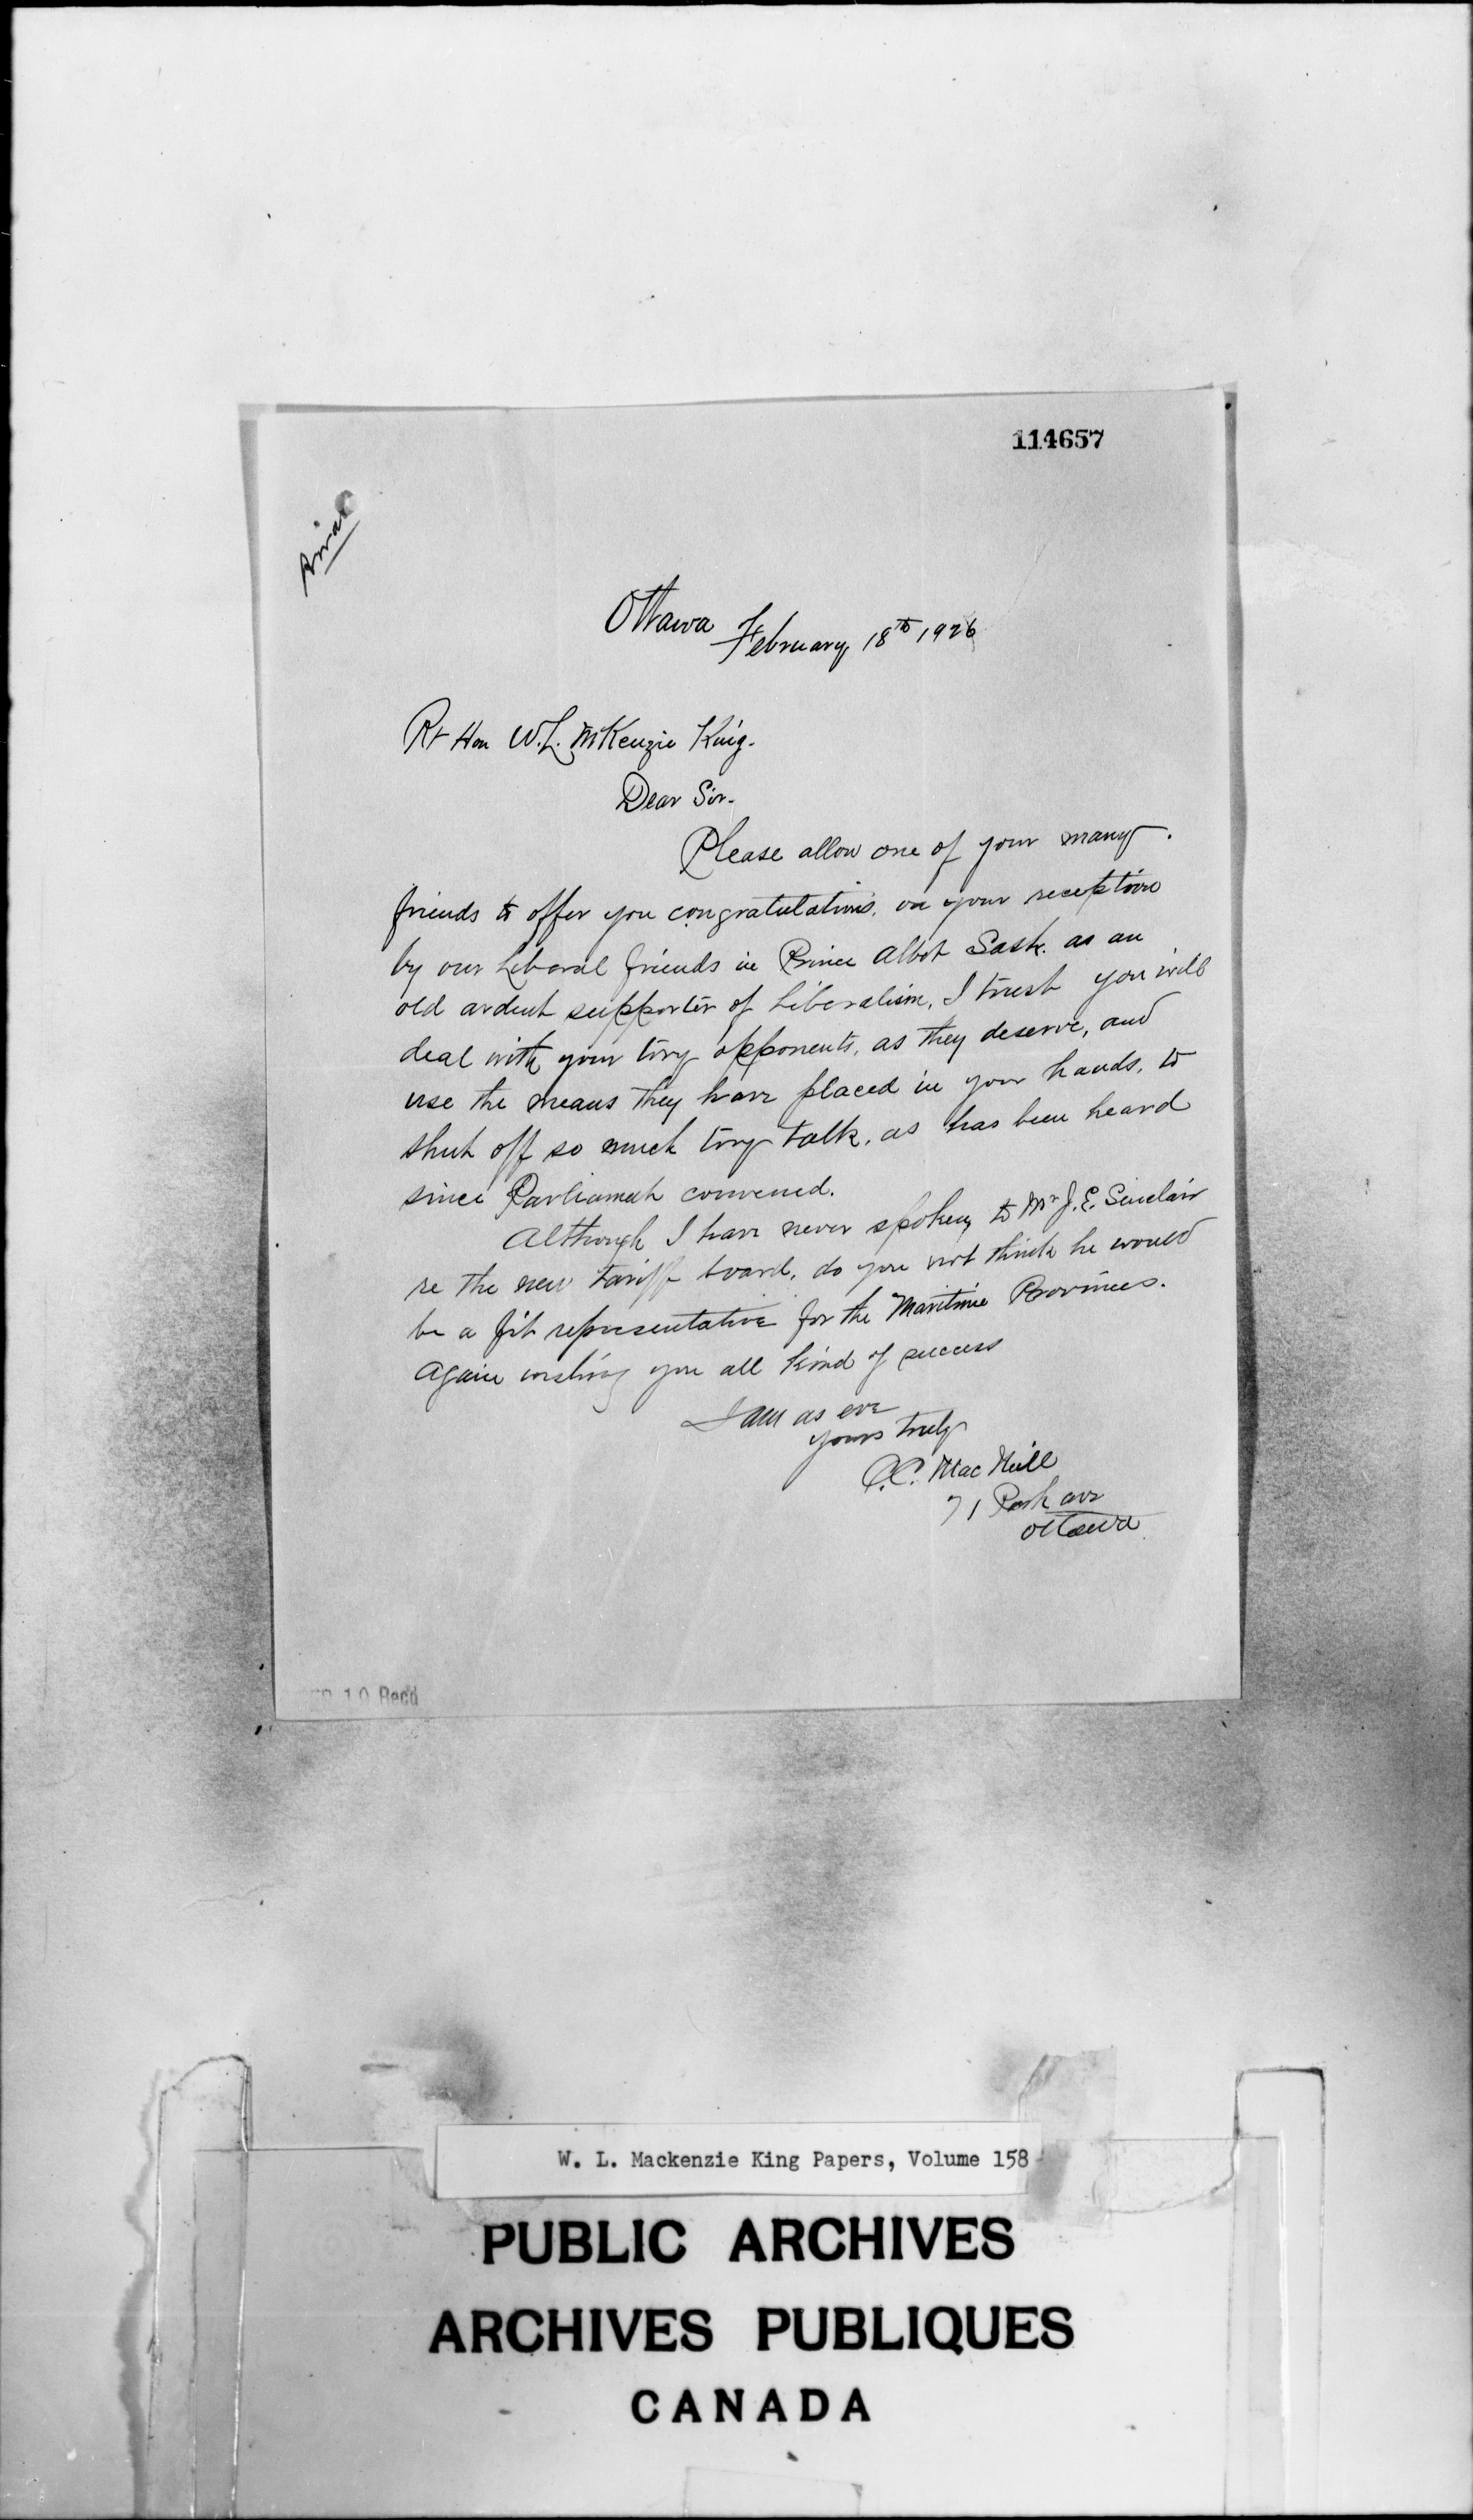 114657
Ottawa February 18th 1926
Rt Hon W.L. McKenzie King.
Dear Sir.
Please allow one of your many.
friends to offer you congratulations, on your reception
by our Liberal friends in Prince Albert Sask. as an
old ardent supporter of Liberalism, I trust you will
deal with your tory opponents, as they deserve, and
use the means they have placed in your hands, to
shut off so much tory talk, as has been heard
since Parliament convened.
Although I have never spoken to Mr J.E. Sinclair
re the new tariff board, do you not think he would
be a fit representative for the Maritime Provinces.
Again wishing you all kind of success
I am as ever
yours truly
MacNeill
71 Park ave
Ottawa
10 Recd
W. L. Mackenzie King Papers, Volume 158
PUBLIC ARCHIVES
ARCHIVES PUBLIQUES
CANADA